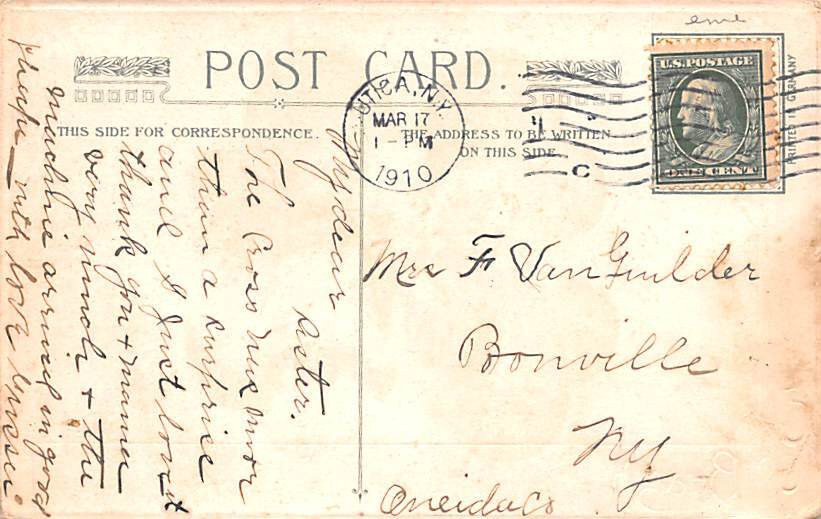 eme
POST CARD.
THIS SIDE FOR CORRESPONDENCE.
THE ADDRESS TO BE WRITTEN
ON THIS SIDE.
UTICA, N.Y.
MAR 17
1 - PM
1910
C
U.S. POSTAGE
ONE CENT
PRINTED IN GERMANY
Mrs F Van Guilder
Bonville
NY
Oneida Co
My dear
sister.
The Cross was mor
than a surprise
and I Just love it
thank you &
very much & the
machine arrived in good
shape with love